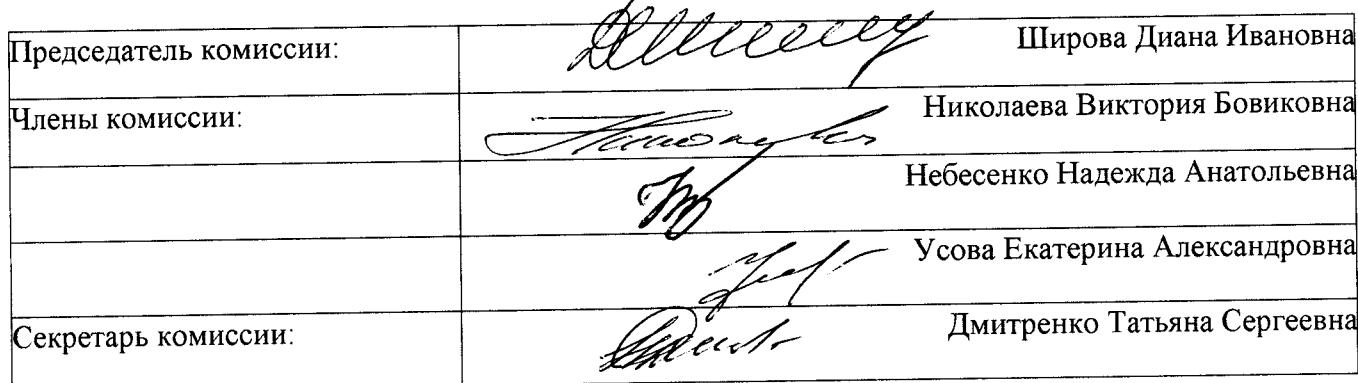 Председатель комиссии: Широва Диана Ивановна
Члены комиссии: Николаева Виктория Бовиковна
Небесенко Надежда Анатольевна
Усова Екатерина Александровна
Секретарь комиссии: Дмитренко Татьяна Сергеевна